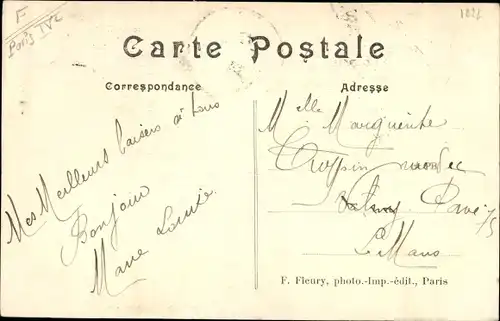 F
Paris IVe
Carte Postale
Correspondance
Adresse
Mes Meilleurs baisers à tous
Bonjour
Marie Louise
Melle Marguerite
Pavé 75
Le Mans
F. Fleury, photo.-Imp.-édit., Paris